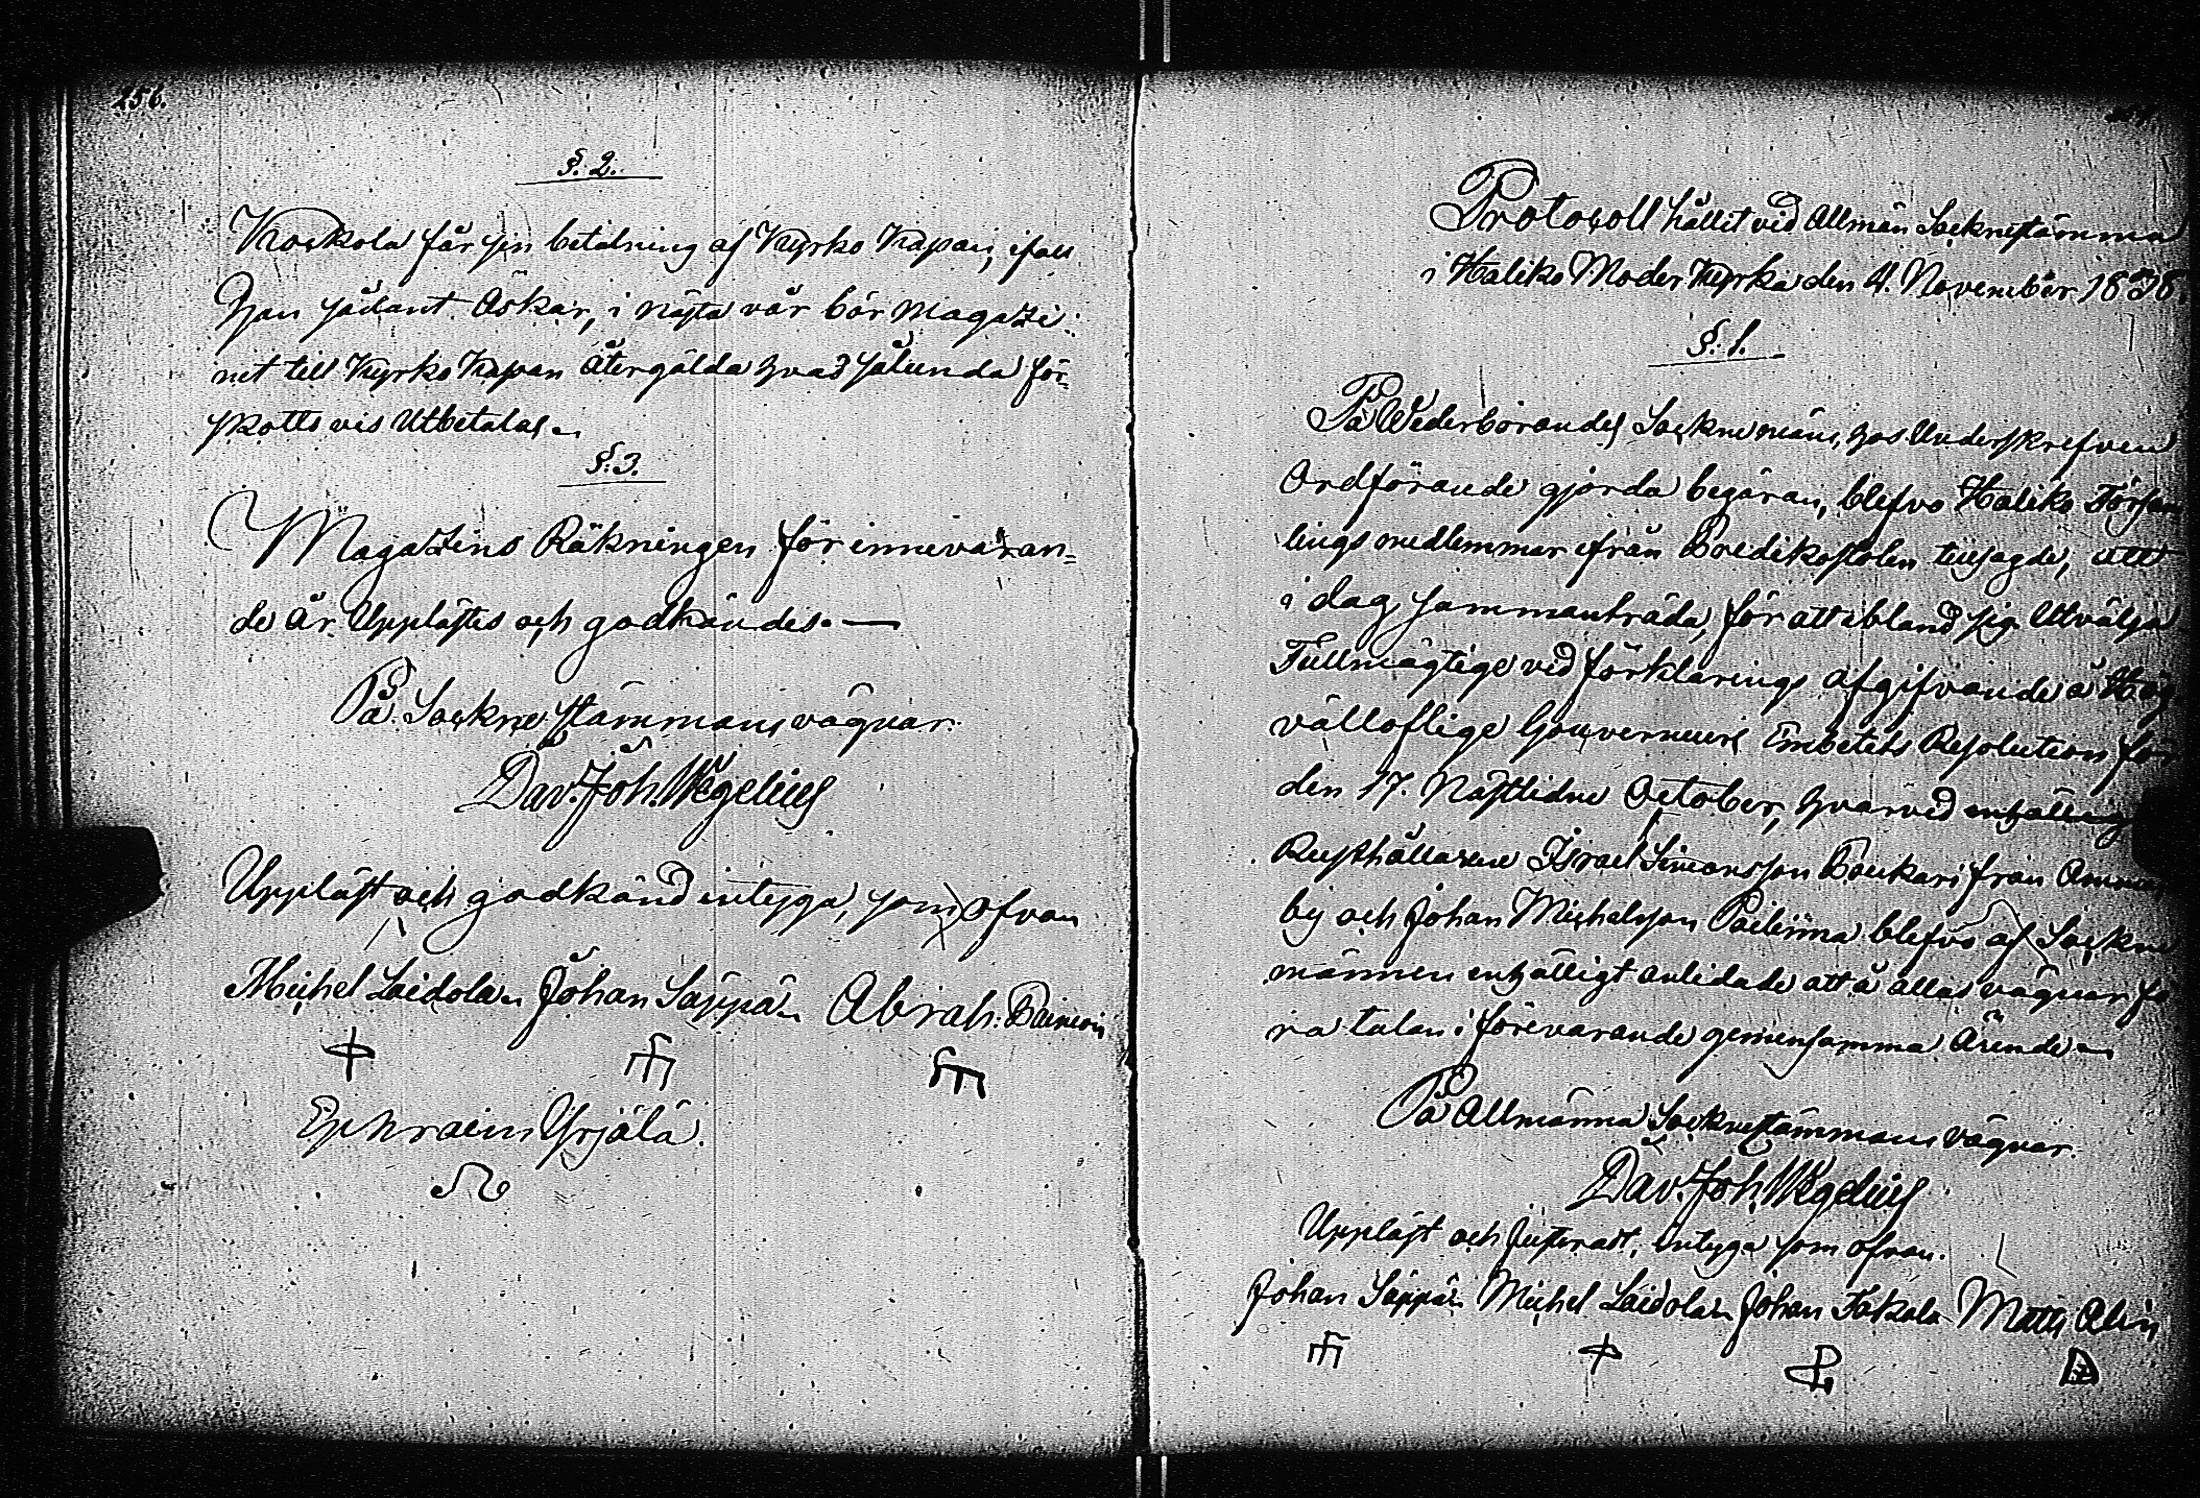 256.
§. 2.
Koskola får sin betalning af Kyrko Kassan, ifall
Han sådant Äskar, i nästa vår bör Magazi:
net till Kyrko Kassan återgälda hvad sålunda för-
skotts vis Utbetalas.
§. 3.
Magazins Räkningen för innevaran=
de år Upplästes och godkändes.
På Sockne stämmans vägnar.
Dav. Joh. Wegelius
Uppläst och godkänd intyga, som ofvan
Michel Laidola Johan Säppä Abrah.
Ephraim Yrjälä.
Protocoll hållit vid Allmän Socknestämma
i Haliko Moder Kyrka den 4. November 1838.
§. 1.
På Wederbörandes Sockne mäns, hos Underskrefven
Ordförande gjorda begäran, blefvo Haliko Församlings
medlemmar ifrån Predikostolen tillsagde, att
i dag sammanträda, för att ibland sig Utvälja
Fullmägtige vid förklarings afgifvande å Hög
välloflige Gouverneurs Embetets Resolution för
den 17. Nästlidne October, hvarvid enhälligt
Rusthållarene Israel Simonsson Boukari från
by och Johan Michelsson blefvo af Sockne
männen enhälligt anlidade att å allas vägnar fö
ra talan i förevarande gemensamma Ärende
På Allmänna Socknestämmans vägnar.
Dav. Joh. Wegelius
Uppläst och Justeradt, intyga som ofvan.
Johan Säppä Michel Laidola Johan Matts